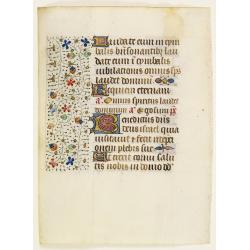 Laudate eum in cym
balis bn sonantib lau
date eum i cymbalis
iubilationis omnis sps
laudet dominu.
Requiem eternam
a. Omnis spiritus laudet
dominum
Benedictus dns
deus israel quia
uisitauit et fecit
onem plebis sue
Et erexit cornu salu
tis nobis in domo dd